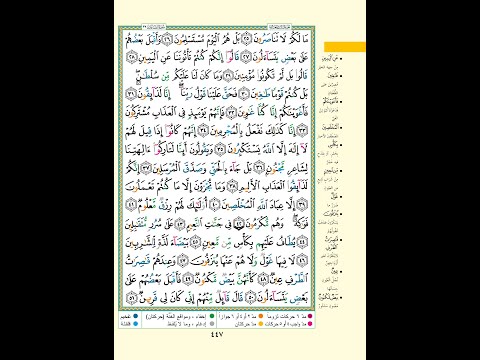 مَا لَكُمْ لَا تَنَاصَرُونَ ﴿٢٥﴾ بَلْ هُمُ ٱلْيَوْمَ مُسْتَسْلِمُونَ ﴿٢٦﴾ وَأَقْبَلَ بَعْضُهُمْ
عَلَىٰ بَعْضٍ يَتَسَآءَلُونَ ﴿٢٧﴾ قَالُوٓا۟ إِنَّكُمْ كُنتُمْ تَأْتُونَنَا عَنِ ٱلْيَمِينِ ﴿٢٨﴾
قَالُوا۟ بَل لَّمْ تَكُونُوا۟ مُؤْمِنِينَ ﴿٢٩﴾ وَمَا كَانَ لَنَا عَلَيْكُم مِّن سُلْطَٰنٍۭ
بَلْ كُنتُمْ قَوْمًا طَٰغِينَ ﴿٣٠﴾ فَحَقَّ عَلَيْنَا قَوْلُ رَبِّنَآ إِنَّا لَذَآئِقُونَ ﴿٣١﴾
فَأَغْوَيْنَٰكُمْ إِنَّا كُنَّا غَٰوِينَ ﴿٣٢﴾ فَإِنَّهُمْ يَوْمَئِذٍ فِى ٱلْعَذَابِ مُشْتَرِكُونَ
﴿٣٣﴾ إِنَّا كَذَٰلِكَ نَفْعَلُ بِٱلْمُجْرِمِينَ ﴿٣٤﴾ إِنَّهُمْ كَانُوٓا۟ إِذَا قِيلَ لَهُمْ
لَآ إِلَٰهَ إِلَّا ٱللَّهُ يَسْتَكْبِرُونَ ﴿٣٥﴾ وَيَقُولُونَ أَئِنَّا لَتَارِكُوٓا۟ ءَالِهَتِنَا
لِشَاعِرٍ مَّجْنُونٍۭ ﴿٣٦﴾ بَلْ جَآءَ بِٱلْحَقِّ وَصَدَّقَ ٱلْمُرْسَلِينَ ﴿٣٧﴾ إِنَّكُمْ
لَذَآئِقُوا۟ ٱلْعَذَابِ ٱلْأَلِيمِ ﴿٣٨﴾ وَمَا تُجْزَوْنَ إِلَّا مَا كُنتُمْ تَعْمَلُونَ
﴿٣٩﴾ إِلَّا عِبَادَ ٱللَّهِ ٱلْمُخْلَصِينَ ﴿٤٠﴾ أُو۟لَٰٓئِكَ لَهُمْ رِزْقٌ مَّعْلُومٌ ﴿٤١﴾
فَوَٰكِهُ وَهُم مُّكْرَمُونَ ﴿٤٢﴾ فِى جَنَّٰتِ ٱلنَّعِيمِ ﴿٤٣﴾ عَلَىٰ سُرُرٍ مُّتَقَٰبِلِينَ
﴿٤٤﴾ يُطَافُ عَلَيْهِم بِكَأْسٍ مِّن مَّعِينٍۭ ﴿٤٥﴾ بَيْضَآءَ لَذَّةٍ لِّلشَّٰرِبِينَ
﴿٤٦﴾ لَا فِيهَا غَوْلٌ وَلَا هُمْ عَنْهَا يُنزَفُونَ ﴿٤٧﴾ وَعِندَهُمْ قَٰصِرَٰتُ
ٱلطَّرْفِ عِينٌ ﴿٤٨﴾ كَأَنَّهُنَّ بَيْضٌ مَّكْنُونٌ ﴿٤٩﴾ فَأَقْبَلَ بَعْضُهُمْ عَلَىٰ
بَعْضٍ يَتَسَآءَلُونَ ﴿٥٠﴾ قَالَ قَآئِلٌ مِّنْهُمْ إِنِّى كَانَ لِى قَرِينٌ ﴿٥١﴾
مد ٦ حركات لزوماً مد ٢ أو ٤ أو ٦ جوازاً إخفاء، ومواقع الغنة (حركتان) تفخيم
مد واجب ٤ أو ٥ حركات مد حركتان إدغام، وما لا يلفظ قلقلة
٤٤٧